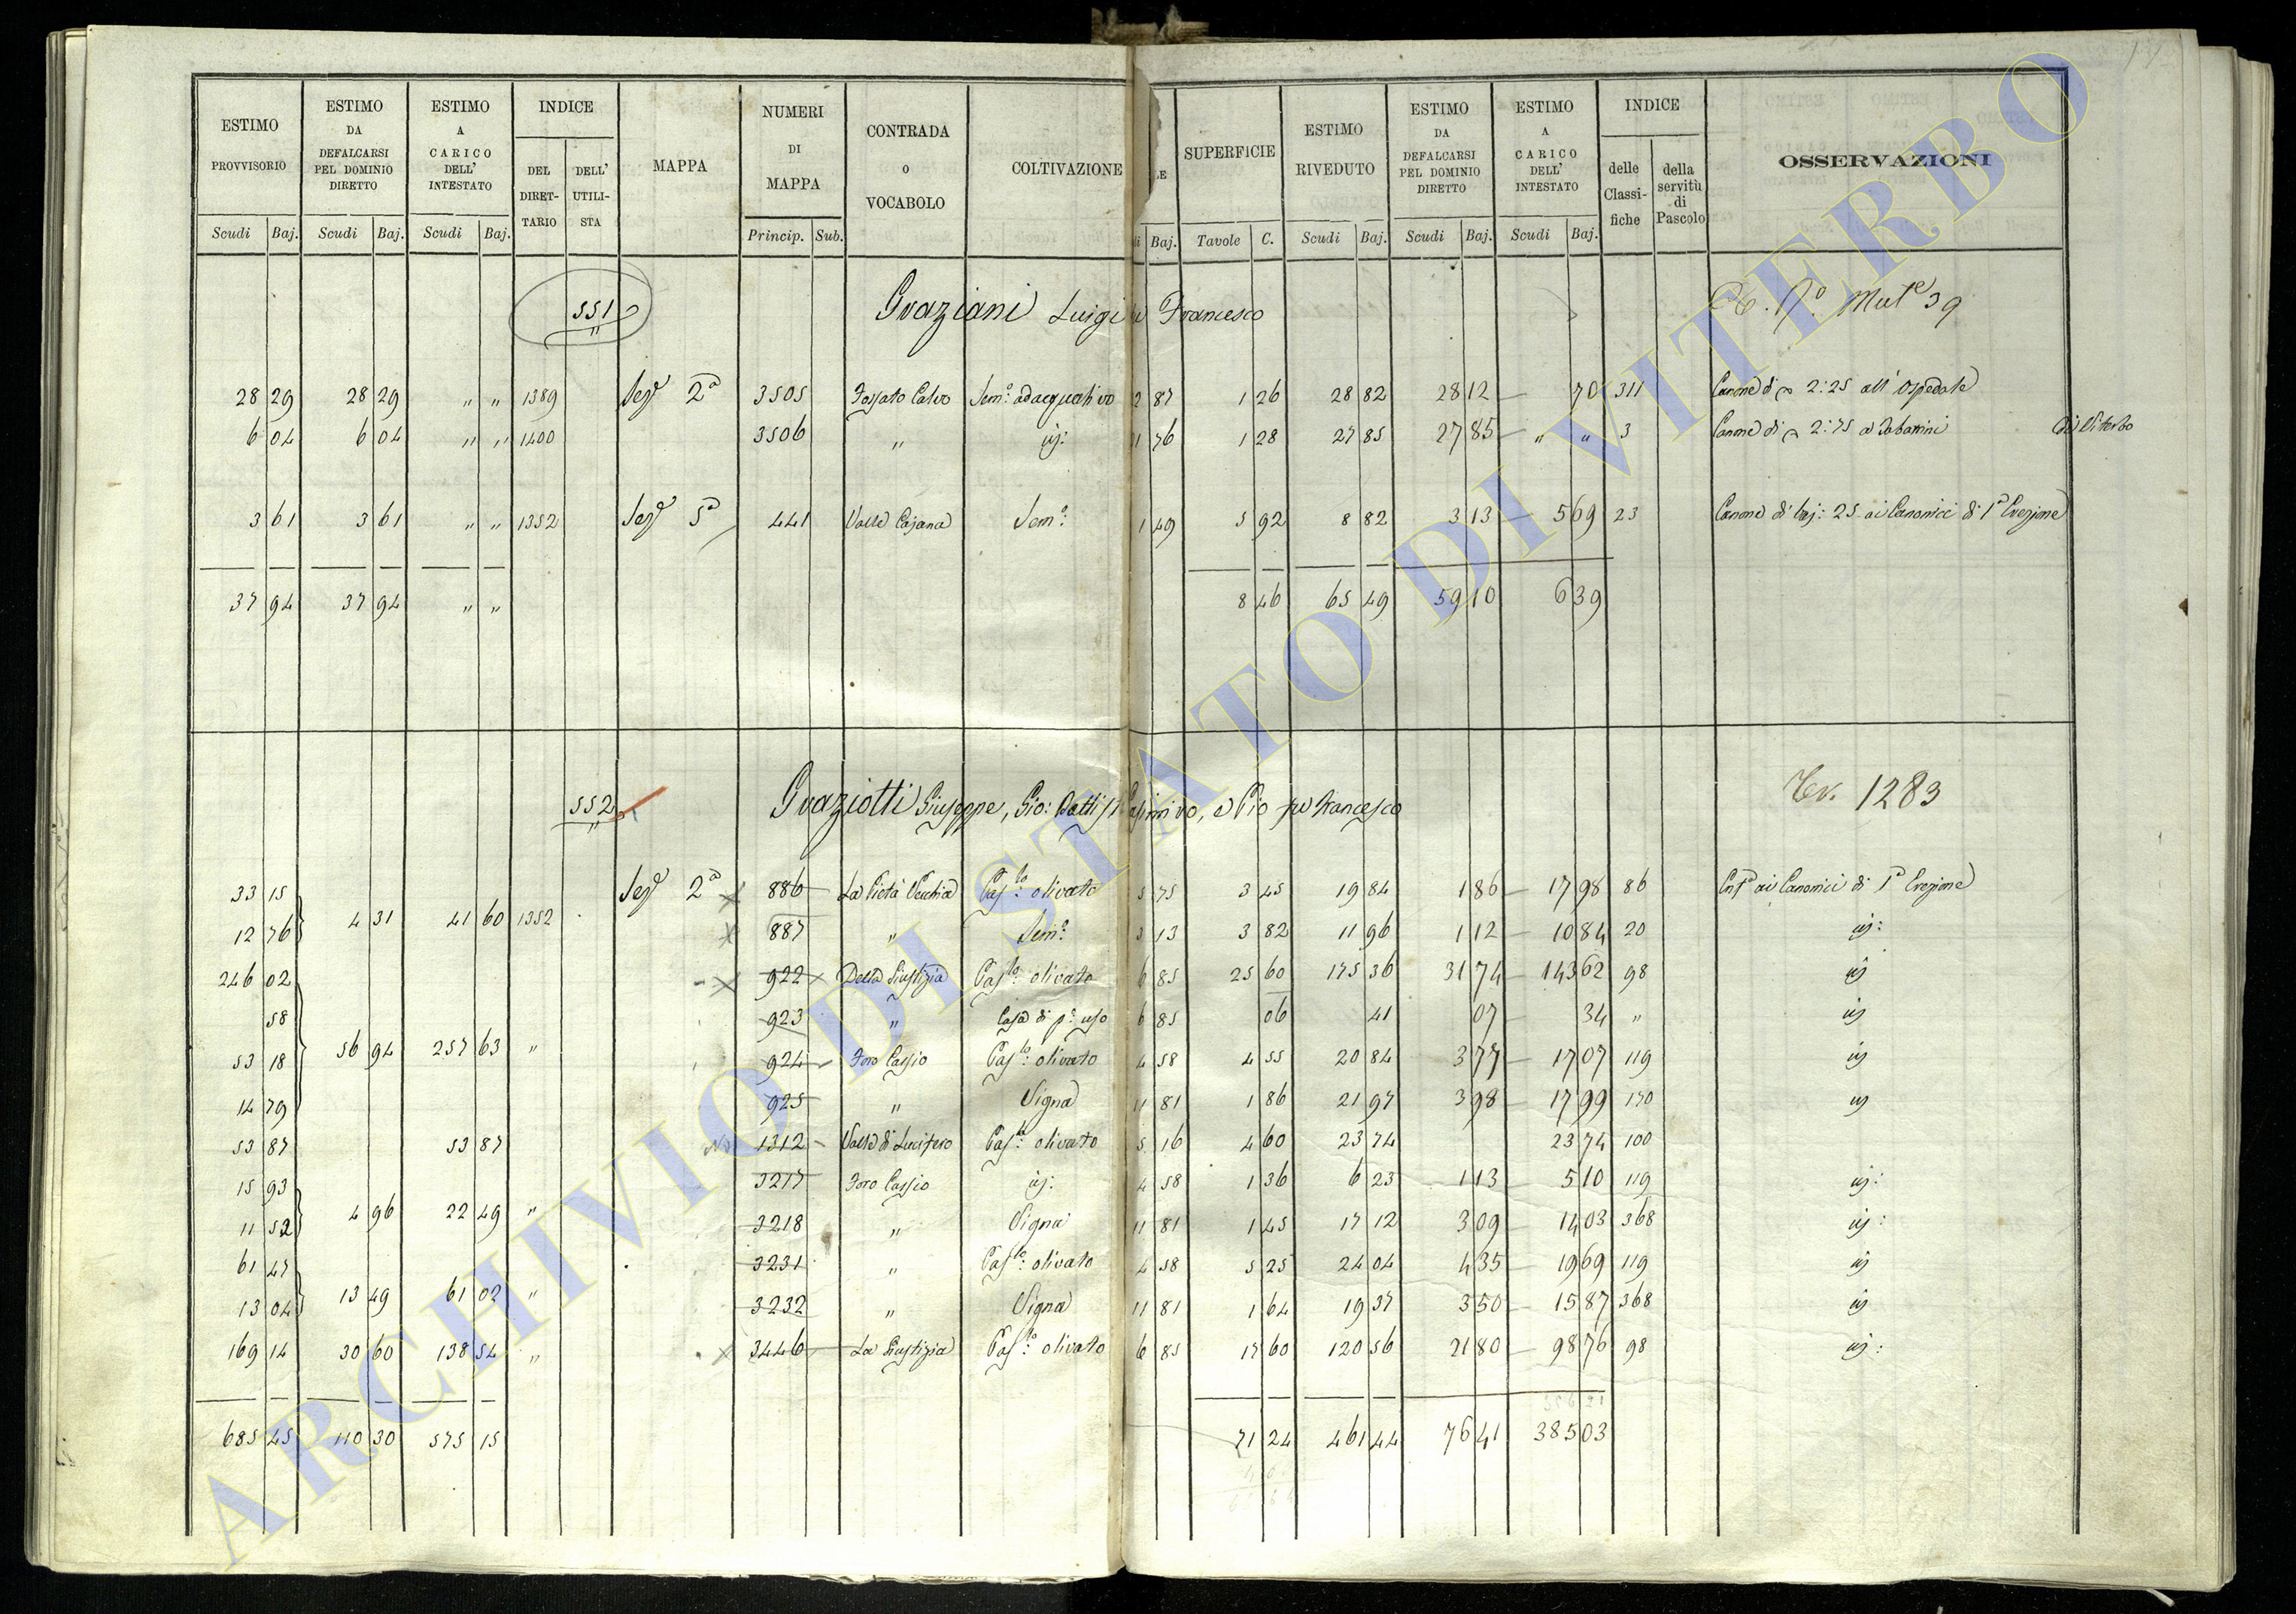 ESTIMO PROVVISORIO | ESTIMO DA DEFALCARSI PEL DOMINIO DIRETTO | ESTIMO A CARICO DELL' INTESTATO | INDICE | MAPPA | NUMERI DI MAPPA | CONTRADA o VOCABOLO | COLTIVAZIONE | LE | SUPERFICIE | ESTIMO RIVEDUTO | ESTIMO DA DEFALCARSI PEL DOMINIO DIRETTO | ESTIMO A CARICO DELL' INTESTATO | INDICE | OSSERVAZIONI
DEL DIRETTARIO | DELL' UTILISTA | delle Classifiche | della servitù di Pascolo
Scudi | Baj. | Scudi | Baj. | Scudi | Baj. | Princip. | Sub. | di | Baj. | Tavole | C. | Scudi | Baj. | Scudi | Baj. | Scudi | Baj.
551 Graziani Luigi Francesco Mut.e 39
28 29 | 28 29 | " " | 1389 | Sez.e 2a | 3505 | Fossato Calvo | Sem.o adacquativo | 2 87 | 1 26 | 28 82 | 28 12 | 70 | 311 | Canone di 2:25 all' Ospedale
6 04 | 6 04 | " " | 1400 | 3506 | " | 21 76 | 1 28 | 27 85 | 27 85 | " " | 3 | Canone di 2:75 a di Viterbo
3 61 | 3 61 | " " | 1352 | Sez.e 5a | 441 | Valle Cajana | Sem.o | 1 49 | 5 92 | 8 82 | 3 13 | 5 69 | 23 | Canone di baj: 25 ai Canonici di 1a Erezione
37 94 | 37 94 | " " | 8 46 | 65 49 | 59 10 | 6 39
552 Graziotti Giuseppe, Gio: Batti Casimiro, e Pio fu Francesco 1283
33 15 | Sez.e 2a | 886 | La Pietà Vecchia | Pas.lo olivato | 5 75 | 3 45 | 19 84 | 1 86 | 17 98 | 86 | ai Canonici di 1a Erezione
4 31 | 41 60 | 1352
12 76 | 887 | " | Sem.o | 3 13 | 3 82 | 11 96 | 1 12 | 10 84 | 20
246 02 | 922 | Della Giustizia | Pas.lo olivato | 6 85 | 25 60 | 175 36 | 31 74 | 143 62 | 98
58 | 923 | " | Casa di p.o uso | 6 85 | 06 | 41 | 07 | 34 | "
56 94 | 257 63 | "
53 18 | 924 | Foro Cassio | Pas.lo olivato | 4 58 | 4 55 | 20 84 | 3 77 | 17 07 | 119
14 79 | 925 | " | Vigna | 11 81 | 1 86 | 21 97 | 3 98 | 17 99 | 170
53 87 | 53 87 | 1312 | Valle di Lucifero | Pas.lo olivato | 5 16 | 4 60 | 23 74 | 23 74 | 100
15 93 | 3217 | Foro Cassio | 4 58 | 1 36 | 6 23 | 1 13 | 5 10 | 119
4 96 | 22 49 | "
11 52 | 3218 | " | Vigna | 11 81 | 1 45 | 17 12 | 3 09 | 14 03 | 368
61 47 | 3231 | " | Pas.lo olivato | 4 58 | 5 25 | 24 04 | 4 35 | 19 69 | 119
13 49 | 61 02 | "
13 04 | 3232 | " | Vigna | 11 81 | 1 64 | 19 37 | 3 50 | 15 87 | 368
169 14 | 30 60 | 138 54 | " | 3446 | La Giustizia | Pas.lo olivato | 6 85 | 17 60 | 120 56 | 21 80 | 98 76 | 98
685 45 | 110 30 | 575 15 | 71 24 | 461 44 | 76 41 | 385 03
ARCHIVIO DI STATO DI VITERBO